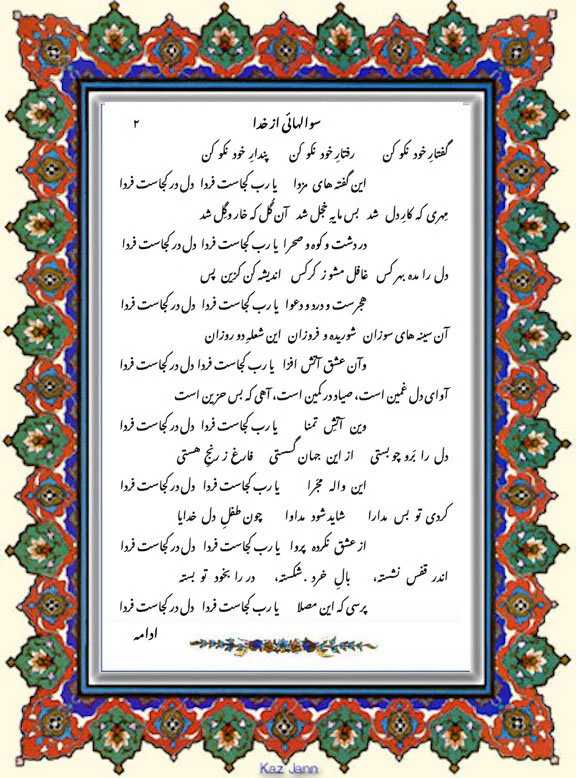 سوالهائی از خدا ۲
گفتارِ خود نکو کن رفتارِ خود نکو کن پندارِ خود نکو کن
این گفته های مزدا یا رب کجاست فردا دل در کجاست فردا
مِهری که کارِ دل شد بس مایه خجل شد آن گُل که خار و گِل شد
در دشت و کوه و صحرا یا رب کجاست فردا دل در کجاست فردا
دل را مده بهر کس غافل مشو ز کرکس اندیشه کن کزین پس
هجرست و درد و دعوا یا رب کجاست فردا دل در کجاست فردا
آن سینه های سوزان شوریده و فروزان این شعلهِ دو روزان
وآن عشق آتش افزا یا رب کجاست فردا دل در کجاست فردا
آوای دل غمین است، صیاد در کمین است، آهی که بس حزین است
وین آتشِ تمنا یا رب کجاست فردا دل در کجاست فردا
دل را بَرو چو بستی از این جهان گسستی فارغ ز رنجِ هستی
این واله یا رب کجاست فردا دل در کجاست فردا
کردی تو بس مدارا شاید شود مداوا چون طفلِ دل خدایا
از عشق نکرده پروا یا رب کجاست فردا دل در کجاست فردا
اندر قفس نشسته، بالِ خرد .شکسته، در را بخود تو بسته
پرسی که این مصلا یا رب کجاست فردا دل در کجاست فردا
ادامه
Kaz Jann